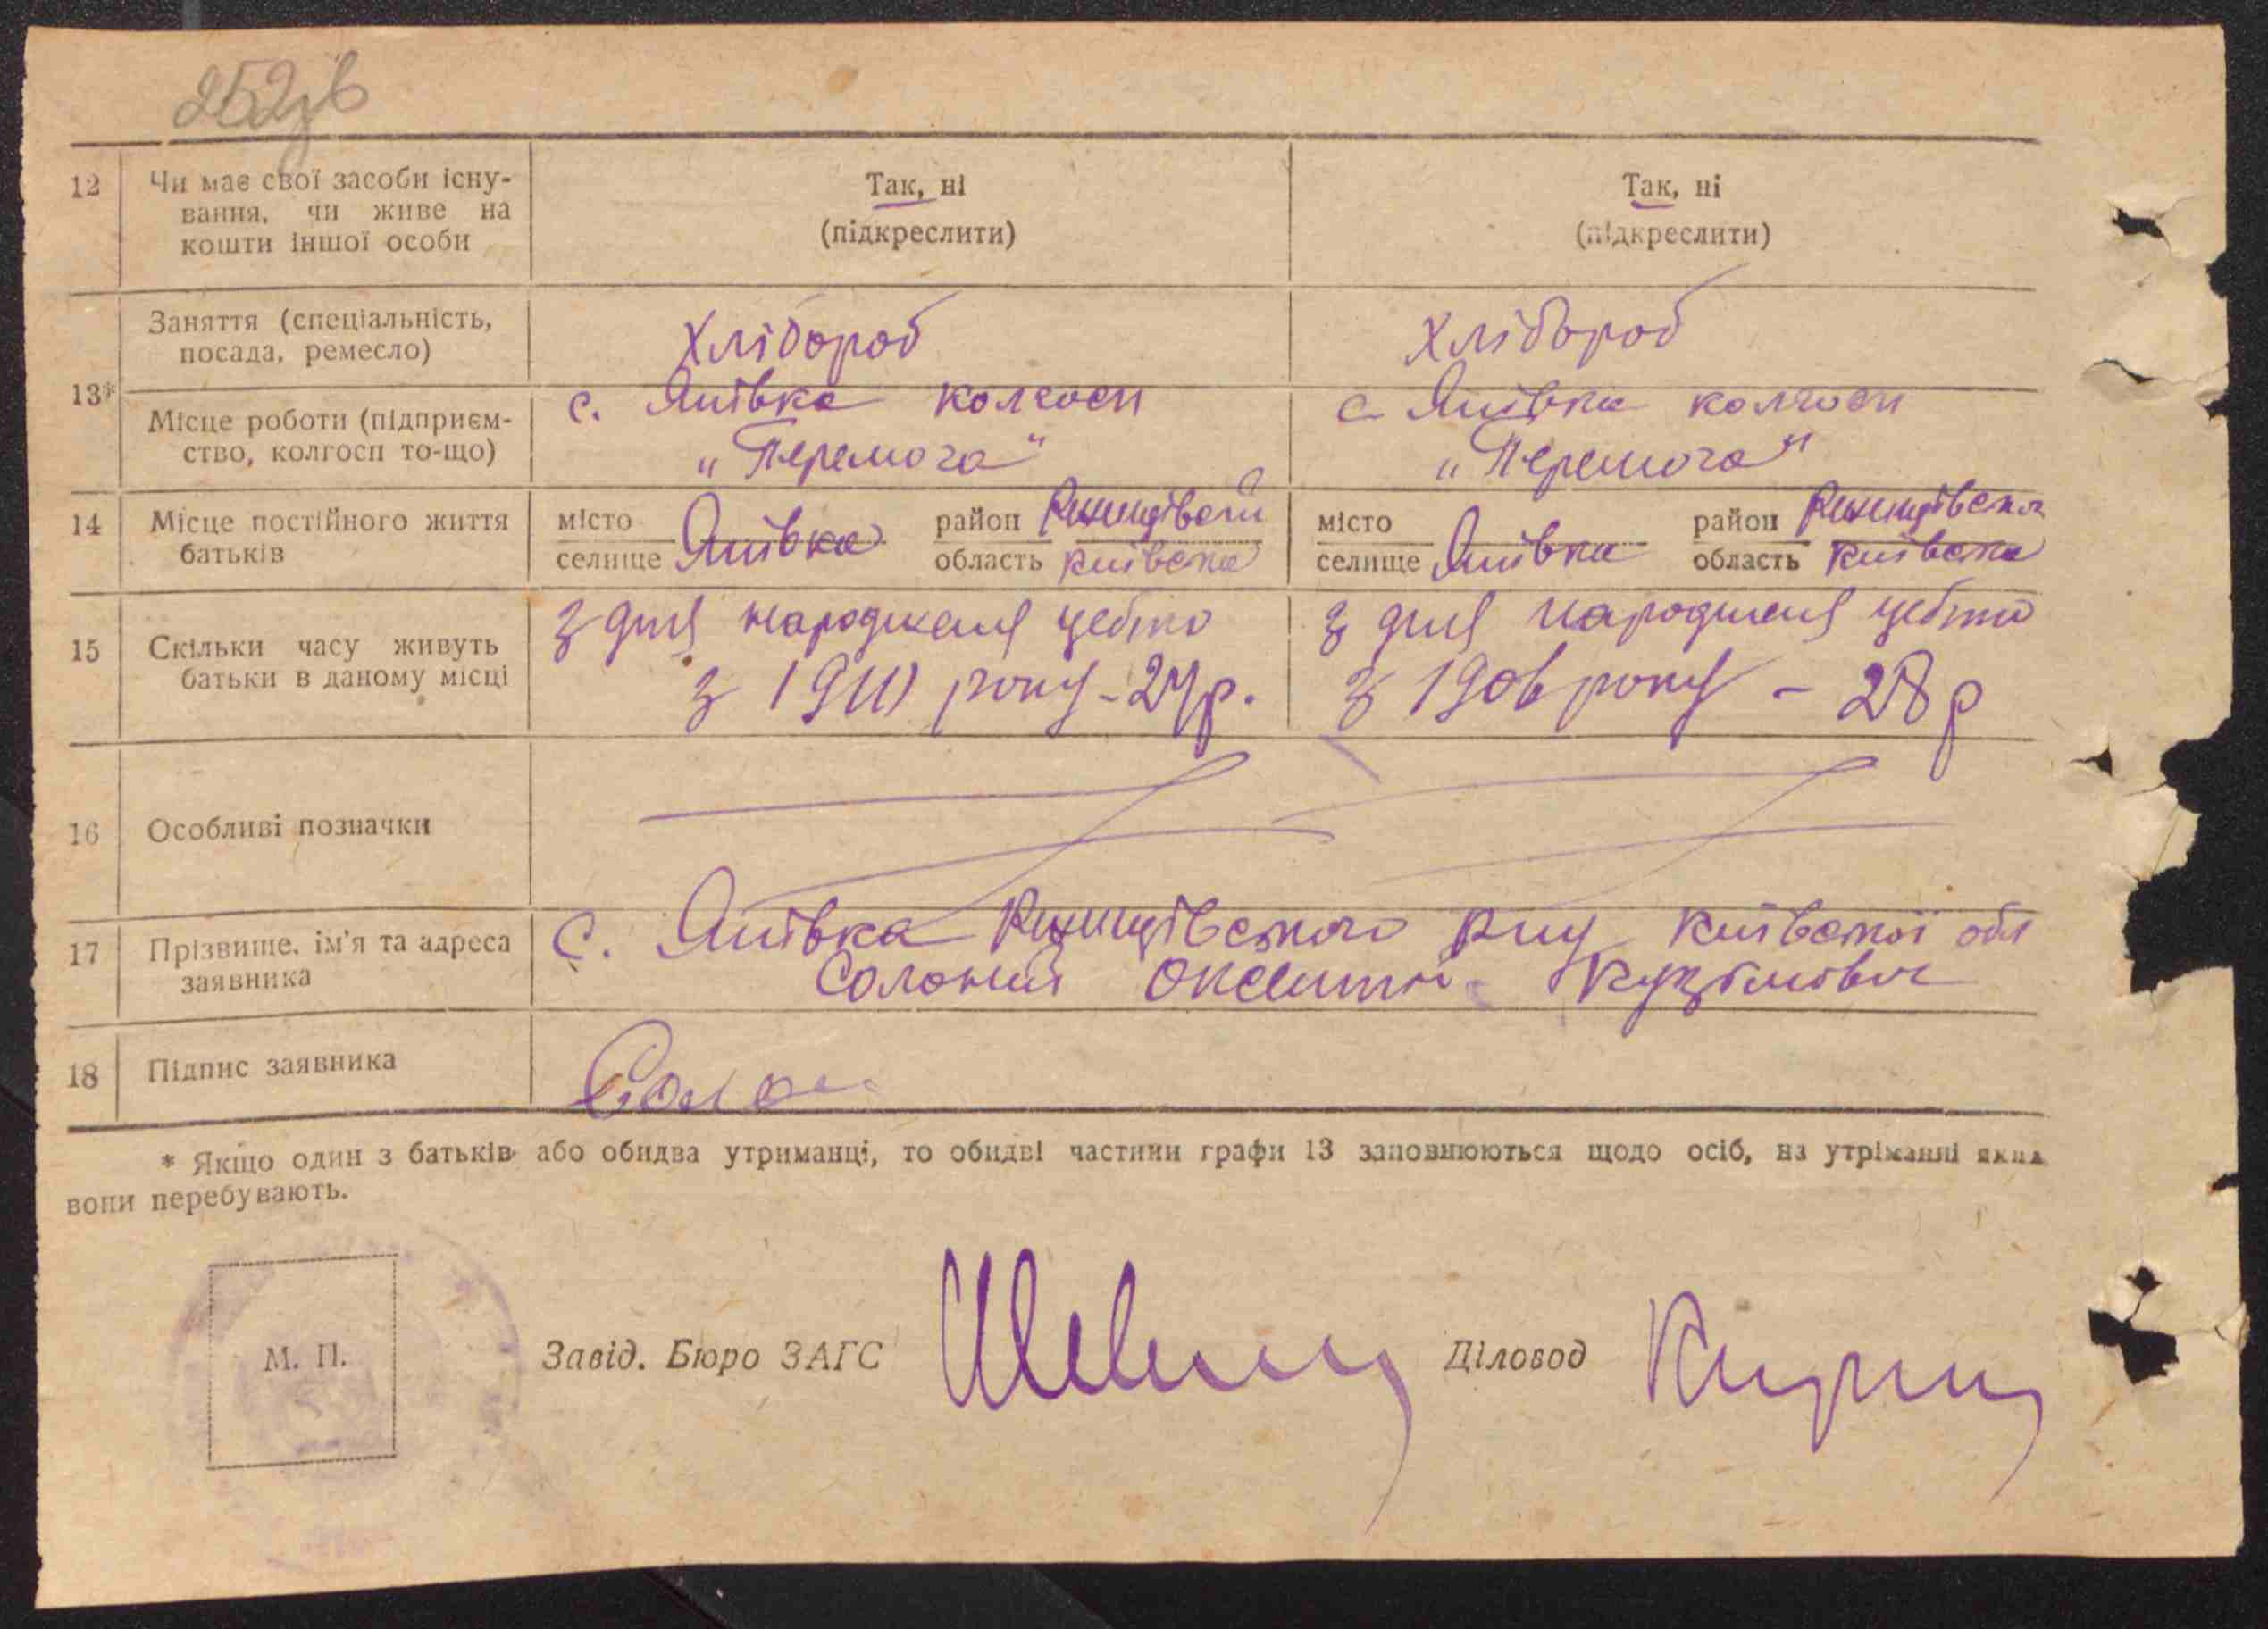 252зв
12 Чи має свої засоби існу-
вання, чи живе на
кошти іншої особи
Так, ні
(підкреслити)
Так, ні
(підкреслити)
13*
Заняття (спеціальність,
посада, ремесло)
Хлібороб
Хлібороб
Місце роботи (підприєм-
ство, колгосп то-що)
с. Янівка колгосп
„Перемога“
с Янівка колгосп
„Перемога“
14 Місце постійного життя
батьків
місто
селище Янівка
район Ржищівськ
область Київська
місто
селище Янівка
район Ржищівськ
область Київська
15 Скільки часу живуть
батьки в даному місці
З дня народженя цебто
з 1910 року - 24 р.
З дня народженя цебто
з 1906 року - 28 р
16 Особливі позначки
17 Прізвище, ім'я та адреса
заявника
С. Янівка Ржищівського р-ну Київської обл
Солоний Оксентій Кузьмович
18 Підпис заявника
Солон
* Якщо один з батьків або обидва утриманці, то обидві частини графи 13 заповнюються щодо осіб, на утріманні яких
вони перебувають.
М. П.
Завід. Бюро ЗАГС
Діловод